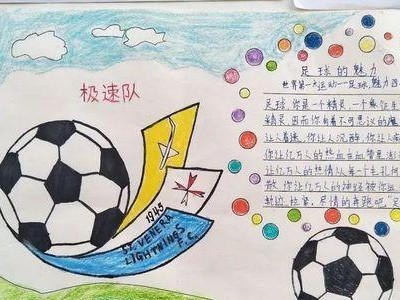 极速队
1945
ST. VENERA
LIGHTNINGS
F.C.
足球的魅力
世界第一大运动——足球,魅力四
足球,你是一个精灵,一个象征
精灵,因而你有着不可思议的魔
让人着迷,你让人沉醉,你让人
你让亿万人的热血在血管里
让亿万人的热情从每一个毛孔
散,你让亿万人的神经被你